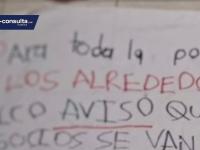 e-consulta
PARA toda la po
LOS ALREDEDO
CO AVISO QU
OCIOS SE VAN